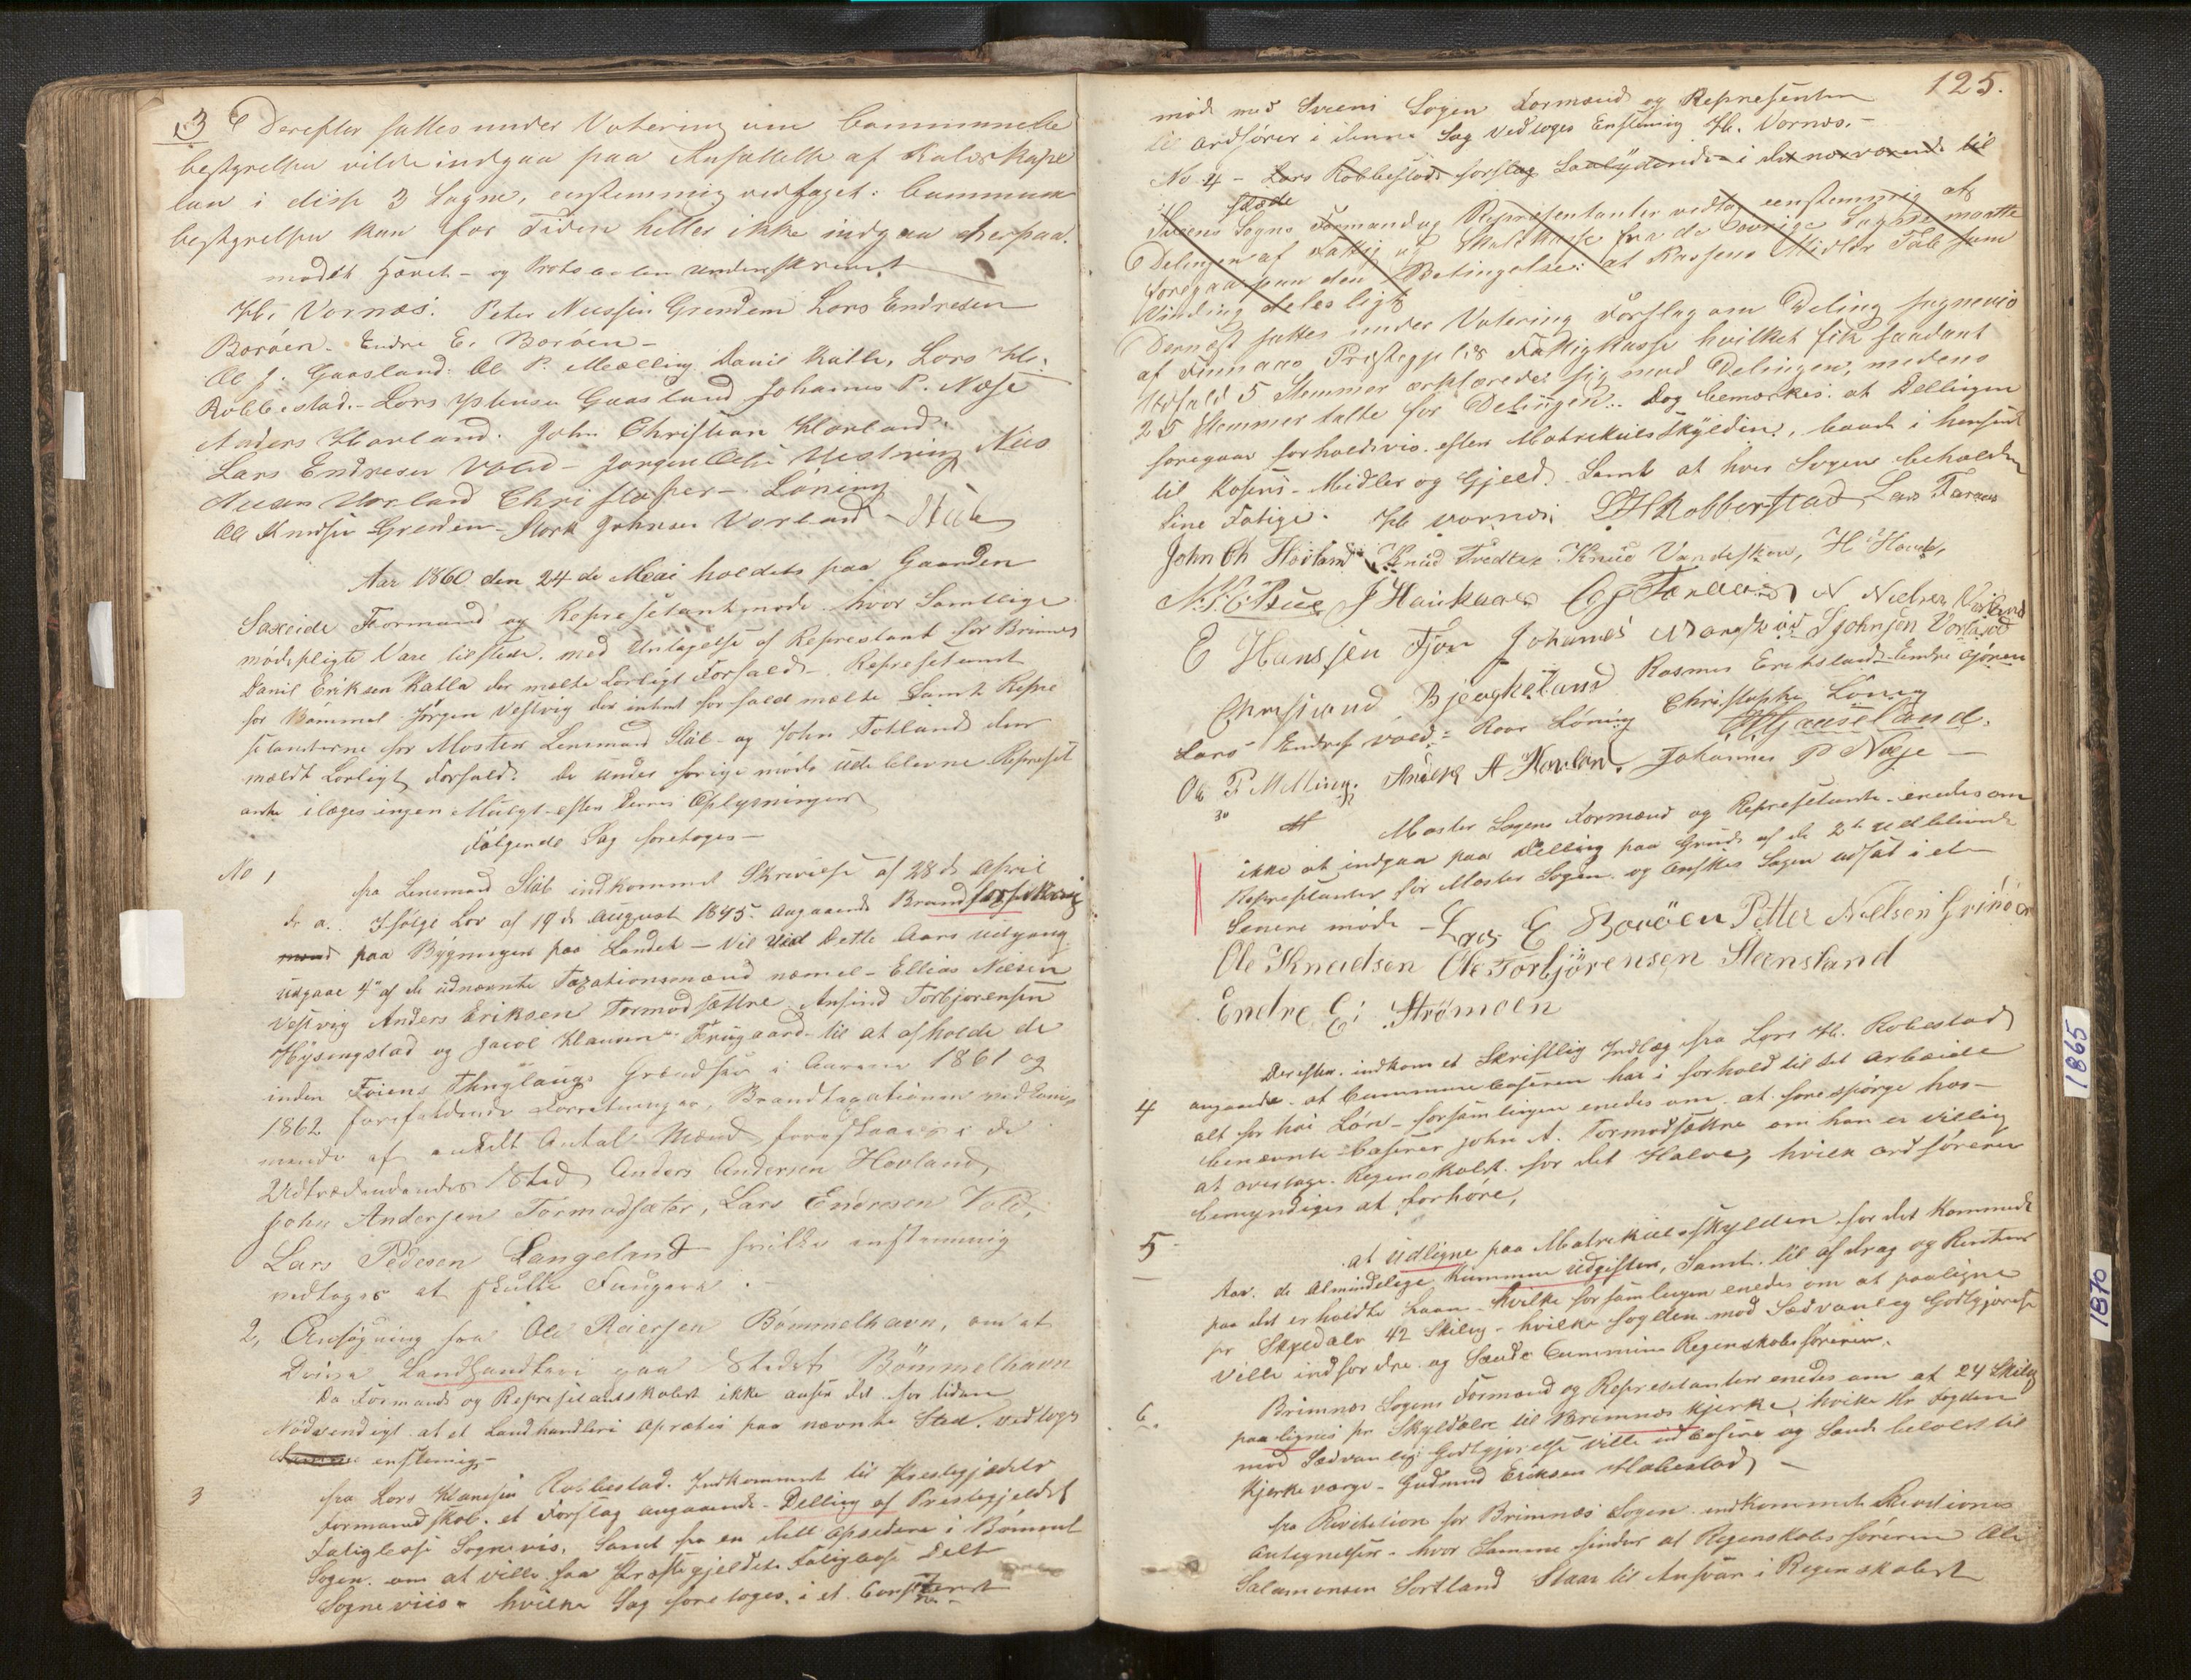 3 Derefter sattes under Votering om Commune
bestyrelsen vilde indgaa paa Ansættelse af
lan i disse 3 Sogne, enstemmig vedtaget: Commune
bestyrelsen kan for Tiden heller ikke indgaa herpaa.
mødet hævet - og Protocolen underskrevet
Hb. Vornæs. Peter Nielsen Grindem Lars Endresen
Boröen. Endre E. Boröen -
Ol J. Gaasland. Ol P. Mælling. Daniel Kalle, Lars Kl.
Robbestad. - Lars Gaasland Johannes P. Næse
Anders Hovland. John Christian Hovland.
Lars Endresen Vold - Jørgen Olsen Vestvig Niels
Nielsen Vorland Christopher - Løning
Ole Knudsen Grinden - Johnsen Vorland -
Aar 1860 den 24de Mai holdets paa Gaarden
Saxeide Formand og Represetantmøde hvor Samtlige
mødepligte Vare tilstede. med Untagelse af Represtant for Brimnes
Daniel Eriksen Kalla der mælte Lovligt Forfald - Represetant
for Bömmel Jörgen Vestvig der intet forfald mælte Samt Repre
setanterne for Moster Lensmand Stub - og John Totland der
mældt Lovligt Forfald. De under forige møde udeblevne Represet
anter ilæges ingen Mulgt efter Deres Oplysninger
Følgende Sag foretoges -
No 1 fra Lensmand Stub indkommet Skrivelse af 28de April
d. a. Ifølge Lov af 19de August 1845 angaaende Brandforsikring
paa Bygninger paa Landet - vil ved Dette Aars udgang
udgaae 4 af de udnævnte Taxationsmænd næmel - Ellias Nielsen
Vestvig Anders Eriksen Tormodsættre Ansind Torbjørensen
Hysingstad og Jacob Klausen Frugaard til at afholde de
inden Föiens Thinglaugs Grændser i Aarene 1861 og
1862 forefaldende Forretninger, Brandtaxationen vedkom-
mende af antalt Antal Mænd foreslaaes i de
Udtrædendendes Sted Anders Andersen Hovland,
John Andersen Tormodsæter, Lars Endresen Vold,
Lars Pedersen Langeland hvilke enstemmig
vedtoges at skulle Fungere. -
2, Ansøgning fra Ole Reiersen Bömmelhavn, om at
Drive Landhandleri paa Stedet Bömmelhavn
Da Formands og Represetantskabet ikke anser det for tiden
Nödvendigt at et Landhandleri oprættes paa nævnte Sted. vedtoges
enstemig -
3 fra Lars Klausen Robbestad. Indkommet til Prestegjældets
Formandskab. et Forslag angaaende - Delling af Prestegjeldets
Fatigkasse Sognevis, Samt fra en Deel Opsidere i Bömmel
Sogen. om at ville faa Præstegjeldets Fatigkasse Delt
Sogneviis - hvilke Sag foretoges i et
125.
møde med Sveens Sogen Formænd og Represented
til ordfører i denne Sag vedtoges Enstemig Hb. Vornæs. -
No 4 - Lars Robbestads forslag Saalydende i det nærværende til
fælde
Sveens Sogns Formænd og Representanter vedtog eenstemmig at
Delingen af Fattig af Skoldkasse fra de øvrige Sogne maatte
foregaa paa den Betingelse: at Kassens Midler Tab som
Vinding deles ligt
Dernæst sattes under Votering Forslag om Deling sogneviis
af Finnaas Præstegjelds Fattigkasse hvilket fik saadant
Udfald 5 Stemmer erklærede sig mod Delingen, medens
25 Stemmer talte for Delingen. Dog bemærkes: at Dellingen
foregaar forholdsvis efter Matrikulsskylden, baade i hensende
til Kassens - Midler og Gjeld. Samt at hver Sogen beholder
sine Fatige. Hb Vornæs. LH Robberstad Lars Faraas
John Ch Hovland Knud Tvedten Knud Vandeskou, H Hovda,
N. N. E. Bue J Haukaas N Nielsen Vorland
E Hanssen Fjon Johannes S Johnsen Vorland
Christian Bjergkeland Rasmus Erikstand Endre Gjøren
Lars Endres Vold - Roar Löning Christopher Lönig
Gaaseland.
Ole P Melling. Anders A Hovland. Johannes P Næse -
30 Moster Sogens Formænd og Represetante - enedes om
ikke at indgaa paa Delling paa Grund af de 2de udeblivende
Represtanter for Moster Sogen. og önskes Sagen udsat i et
Senere møde - Lars E Boröen Petter Nielsen Grinöen
Ole Knudsen Ole Torbjörensen Steensland
Endre E: Strömöen
4 Derefter indkom et Skriftlig Indlæg fra Lars H. Robestad
angaaende - at Communecaseren har i forhold til det Arbeide
alt for höi Lön - forsamlingen enedes om. at foresspörge hos -
benævnte Caserer John A. Tormodsættre om han er villig
at overtage Regenskabet for det Halve, hvilk ordföreren
bemyndiges at forhöre,
5 at udligne paa Matrikulsskylden for det Kommende
Aar. de Almindelige Kummune udgifter, Samt. til afdrag og Renter
paa det erholdte Laan - hvilke forsamlingen enedes om at paaligne
pr Skyldalr 42 Skilling - hvilke fogden mod Sædvanlig Godtgjörelse
ville indfordre og Sende Cummune Regenskabsföreren.
6. Brimnæs Sogens Formænd og Represetanter enedes om at 24 Skiling
paalignes pr Skyldaler til Brimnæs Kjerke, hvilke Hr Fogden
mod Sædvanlig Godtgjörelse ville udCasere og Sende belöbet til
Kjerkeværge - Gudmund Eriksen Habestad -
fra Revisition for Brimnæs Sogen indkommet
Antegnelser - hvor Samme finder at Regenskabsföreren Ole
Salamonsen Sortland Staar til Ansvar i Regenskabet
1865
1870